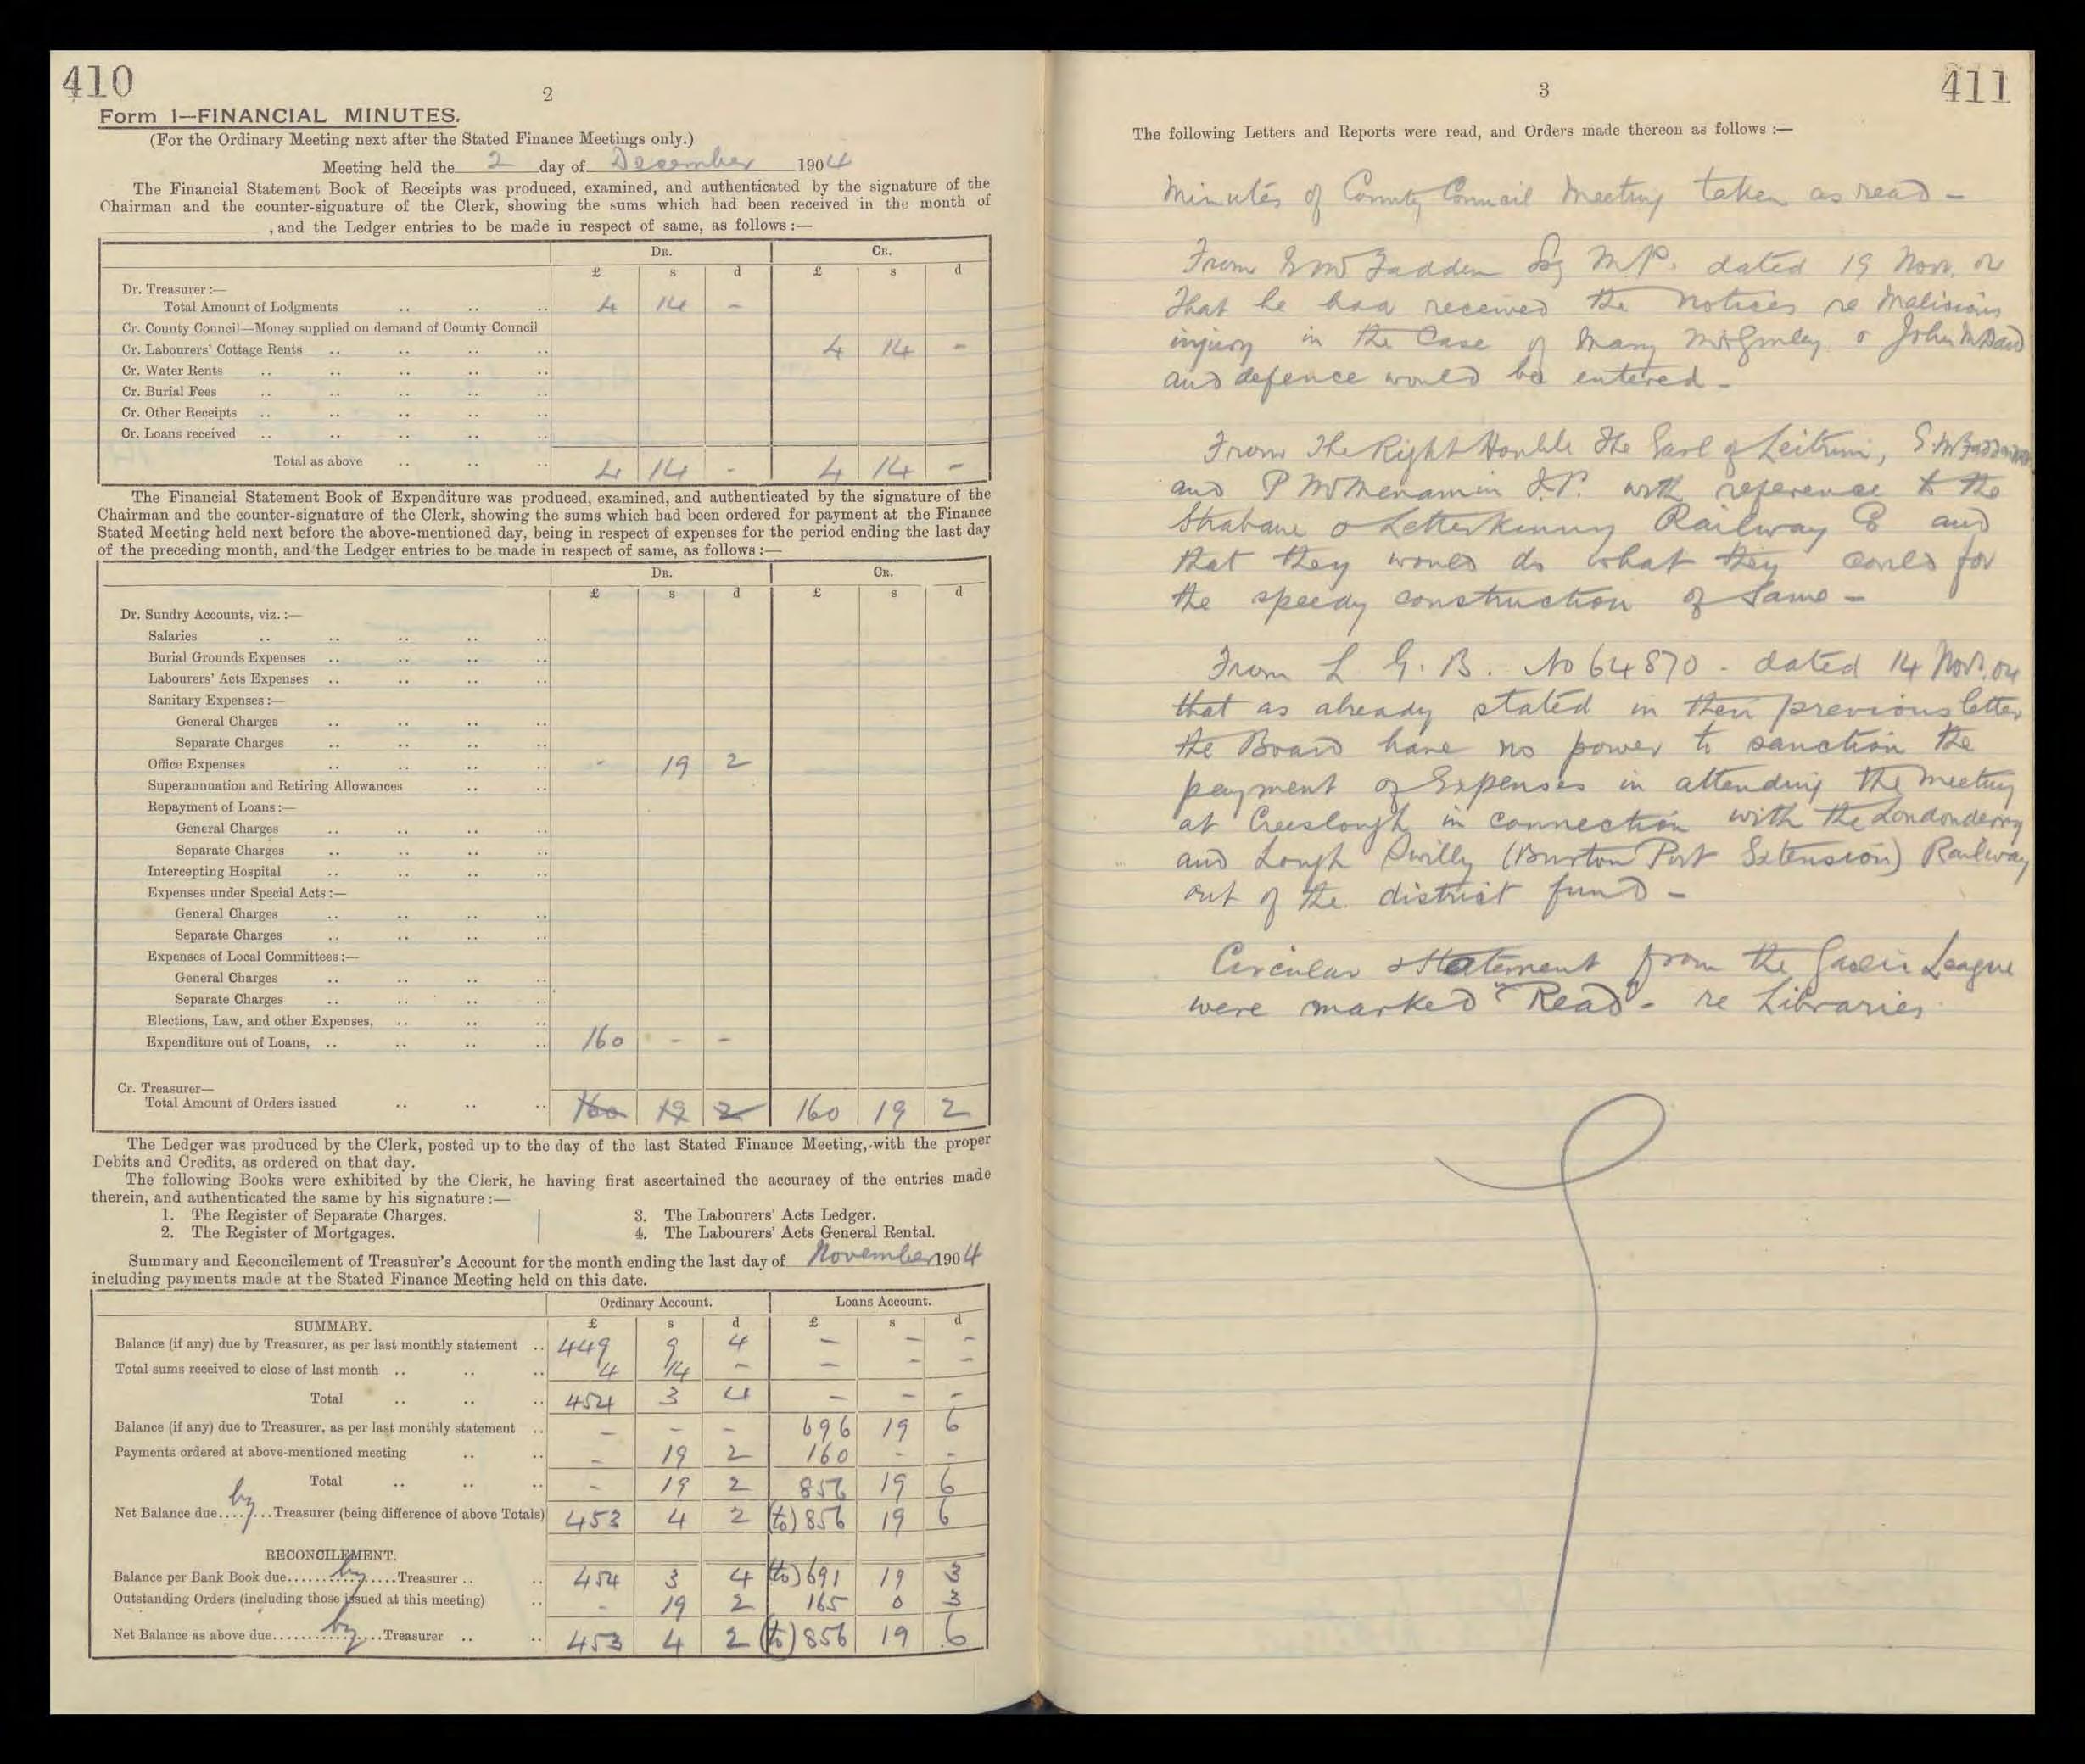 410
2
Form 1—FINANCIAL MINUTES.
(For the Ordinary Meeting next after the Stated Finance Meetings only.)
Meeting held the 2 day of December 1904
The Financial Statement Book of Receipts was produced, examined, and authenticated by the signature of the
Chairman and the counter-signature of the Clerk, showing the sums which had been received in the month of
, and the Ledger entries to be made in respect of same, as follows :—
DR. CR.
£ s d £ s d
Dr. Treasurer :—
Total Amount of Lodgments .. .. .. 4 14 -
Cr. County Council—Money supplied on demand of County Council
Cr. Labourers' Cottage Rents .. .. .. .. 4 14 -
Cr. Water Rents .. .. .. .. ..
Cr. Burial Fees .. .. .. .. ..
Cr. Other Receipts .. .. .. .. ..
Cr. Loans received .. .. .. .. ..
Total as above .. .. .. 4 14 - 4 14 -
The Financial Statement Book of Expenditure was produced, examined, and authenticated by the signature of the
Chairman and the counter-signature of the Clerk, showing the sums which had been ordered for payment at the Finance
Stated Meeting held next before the above-mentioned day, being in respect of expenses for the period ending the last day
of the preceding month, and the Ledger entries to be made in respect of same, as follows :—
DR. CR.
£ s d £ s d
Dr. Sundry Accounts, viz. :—
Salaries .. .. .. .. ..
Burial Grounds Expenses .. .. .. ..
Labourers' Acts Expenses .. .. .. ..
Sanitary Expenses :—
General Charges .. .. .. ..
Separate Charges .. .. .. ..
Office Expenses .. .. .. .. - 19 2
Superannuation and Retiring Allowances .. ..
Repayment of Loans :—
General Charges .. .. .. ..
Separate Charges .. .. .. ..
Intercepting Hospital .. .. .. ..
Expenses under Special Acts :—
General Charges .. .. .. ..
Separate Charges .. .. .. ..
Expenses of Local Committees :—
General Charges .. .. .. ..
Separate Charges .. .. .. ..
Elections, Law, and other Expenses, .. .. ..
Expenditure out of Loans, .. .. .. .. 160 - -
Cr. Treasurer—
Total Amount of Orders issued .. .. .. 160 19 2 160 19 2
The Ledger was produced by the Clerk, posted up to the day of the last Stated Finance Meeting, with the proper
Debits and Credits, as ordered on that day.
The following Books were exhibited by the Clerk, he having first ascertained the accuracy of the entries made
therein, and authenticated the same by his signature :—
1. The Register of Separate Charges. 3. The Labourers' Acts Ledger.
2. The Register of Mortgages. 4. The Labourers' Acts General Rental.
Summary and Reconcilement of Treasurer's Account for the month ending the last day of November 1904
including payments made at the Stated Finance Meeting held on this date.
Ordinary Account. Loans Account.
SUMMARY. £ s d £ s d
Balance (if any) due by Treasurer, as per last monthly statement .. 449 9 4 — — -
Total sums received to close of last month .. .. .. 4 14 - — - -
Total .. .. .. 454 3 4 — — -
Balance (if any) due to Treasurer, as per last monthly statement .. — - - 696 19 6
Payments ordered at above-mentioned meeting .. .. - 19 2 160 - -
Total .. .. .. - 19 2 856 19 6
Net Balance due....by...Treasurer (being difference of above Totals) 453 4 2 (to) 856 19 6
RECONCILEMENT.
Balance per Bank Book due......by......Treasurer .. .. 454 3 4 (to) 691 19 3
Outstanding Orders (including those issued at this meeting) .. - 19 2 165 0 3
Net Balance as above due......by......Treasurer .. .. 453 4 2 (to) 856 19 6
3
411
The following Letters and Reports were read, and Orders made thereon as follows :—
Minutes of County Council Meeting taken as read —
From E McFadden Esq M.P. dated 19 Nov. 04
that he had received the notices re Malicious
injury in the Case of Mary McGinley & John
and defence would be entered —
From The Right Honble the Earl of Leitrim, E. McFadden
and P McMenamin J.P. with reference to the
Strabane & Letterkenny Railway Co and
that they would do what they could for
the speedy construction of Same —
From L. G. B. No 64870 - dated 14 Novr. 04
that as already stated in their previous letter
the Board have no power to sanction the
payment of Expenses in attending the Meeting
at Creeslough in connection with the Londonderry
and Lough Swilly (Burton Port Extension) Railway
out of the district fund —
Circular & Statement from the Gaelic League
were marked "Read" - re Libraries